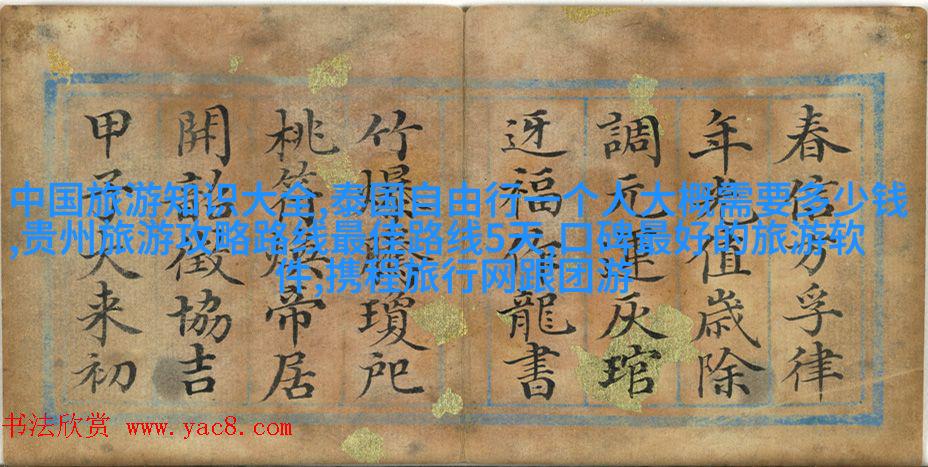 春信方孚律
年光值歲除
調元運灰琯
迓福俻龍書
竹爆瓊戺
桃符煥帝居
開韶徵協吉
甲子大來初
中国旅游知识大全,泰国自由行一个人大概需要多少钱
,贵州旅游攻略路线最佳路线5天,口碑最好的旅游软
件,携程旅行网跟团游
书法欣赏 www.yac8.com